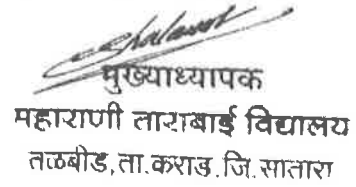 मुख्याध्यापक
महाराणी ताराबाई विद्यालय
तळबीड, ता.कराड.जि.सातारा